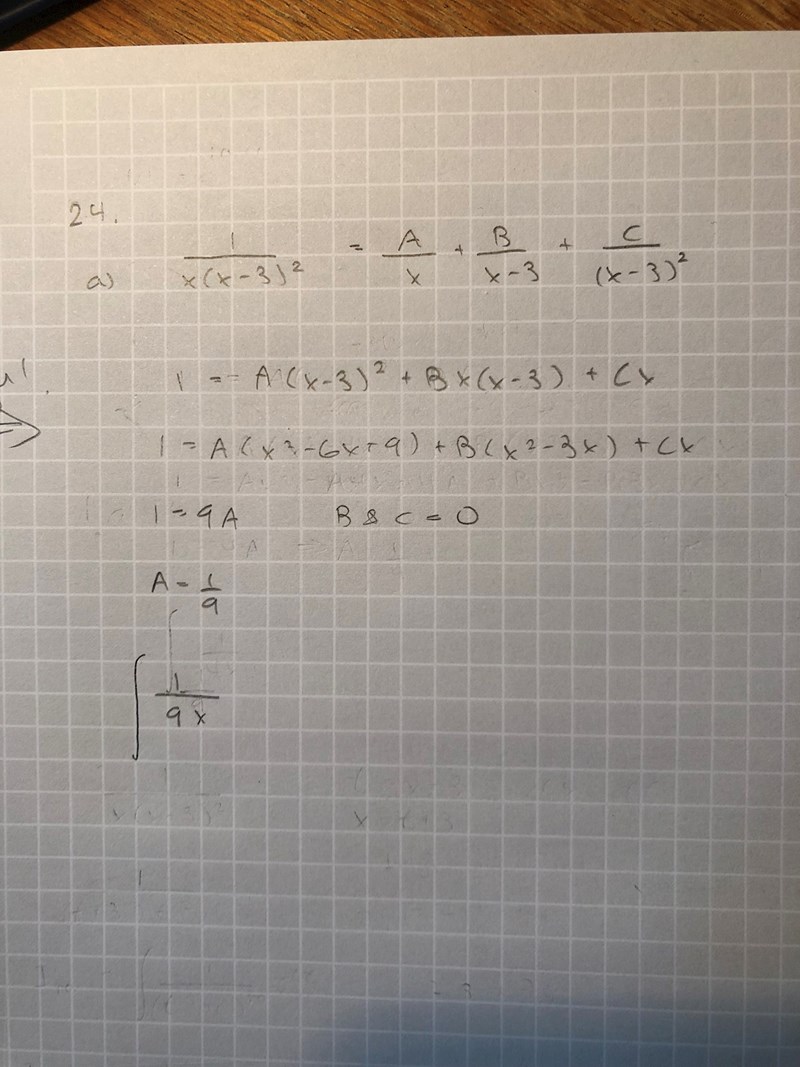 24.
a) 1/(x(x-3)²) = A/x + B/(x-3) + C/(x-3)²
1 = A(x-3)² + Bx(x-3) + Cx
1 = A(x²-6x+9) + B(x²-3x) + Cx
1 = 9A B & C = 0
A = 1/9
∫ 1/(9x)